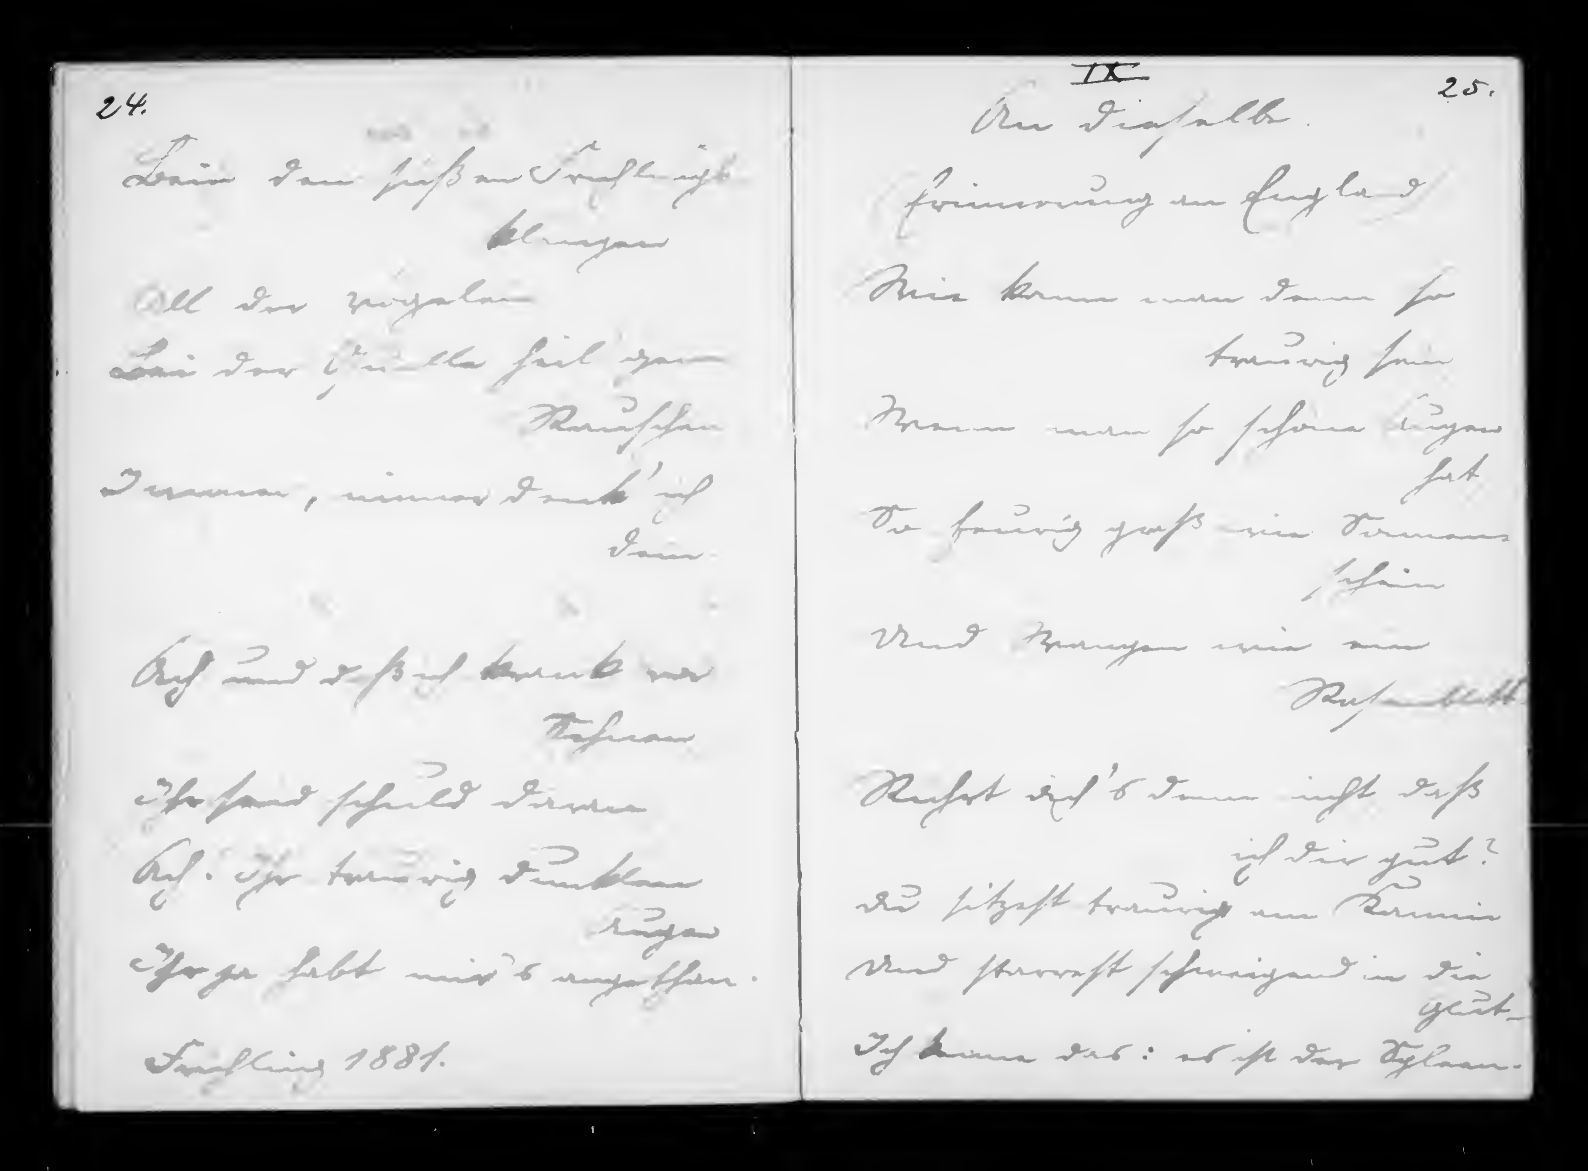 24.
Beim den süßen Frühlings
klangen
All der vögelein
Bei der Quelle heil'gem
Rauschen
Immer, immer denk' ich
dein.
Ach und daß ich krank vor
Sehnen
Ihr seid schuld daran
Ach! Ihr traurig dunklen
Augen
Ihr ja habt mir's angethan.
Frühling 1881.
IX
25.
An dieselbe.
(Erinnerung an England)
Wie kann man denn so
traurig sein
Wenn man so schöne Augen
hat
So feurig groß wie Sonnen=
schein
Und Wangen wie ein
Rosenblatt
Rührt dich's denn nicht daß
ich dir gut?
du sitzest traurig am Kamin
Und starrest schweigend in die
glut_
Ich kenne das: es ist der Spleen.